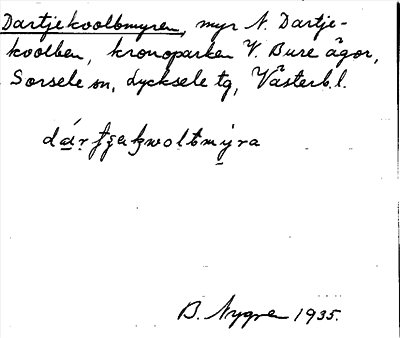 Dartjekoolbmyren, myr N. Dartje-
koolben, kronoparken V. Bure ägor,
Sorsele sn, Lycksele tg, Västerb.l.
B. Nygren 1935.